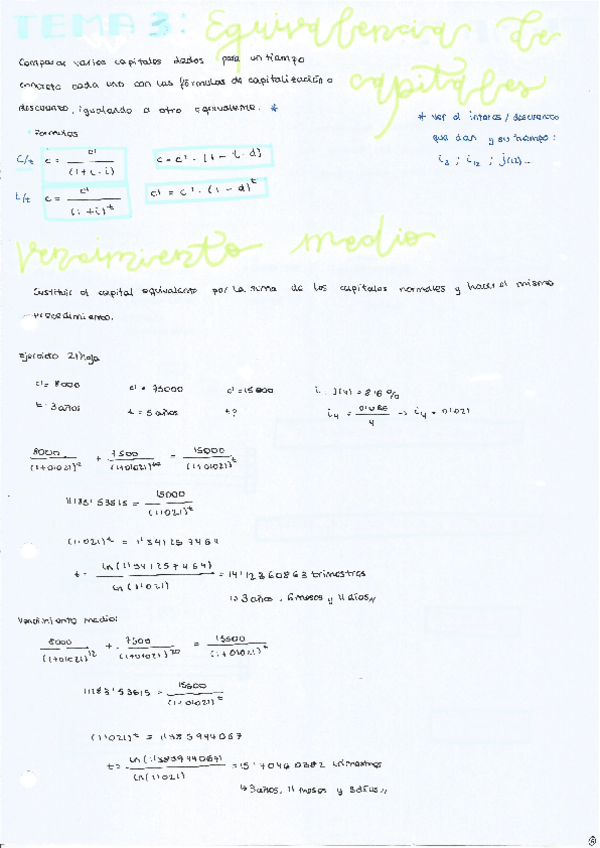 TEMA 3: Equivalencia de capitales
Comparar varios capitales dados para un tiempo
concreto cada uno con las fórmulas de capitalización o
descuento, igualando a otro equivalente. *
* ver el interés / descuento
que dan y su tiempo:
i₃ ; i₁₂ ; j(12)...
Formulas
C/t c = c' / (1+t·i) c = c' · [1 - t·d]
L/t c = c' / (1+i)^t c' = c' · (1 - d)^t
Vencimiento medio
Sustituir el capital equivalente por la suma de los capitales normales y hacer el mismo
procedimiento.
Ejercicio 21 hoja
c' = 8000 c' = 7500 c' = 15000 i: J(4) = 8'4%
t = 3 años t = 5 años t? i₄ = 0'084 / 4 → i₄ = 0'021
8000 / (1+0'021)^12 + 7500 / (1+0'021)^20 = 15000 / (1+0'021)^t
11183'53815 = 15000 / (1'021)^t
(1'021)^t = 1'341257464
t = ln(1'341257464) / ln(1'021) = 14'12860863 trimestres
↳ 3 años, 6 meses y 11 días
Vencimiento medio:
8000 / (1+0'021)^12 + 7500 / (1+0'021)^20 = 15500 / (1+0'021)^t
11183'53815 = 15500 / (1'021)^t
(1'021)^t =
t = = trimestres
↳ 3 años, 11 meses y 3 días